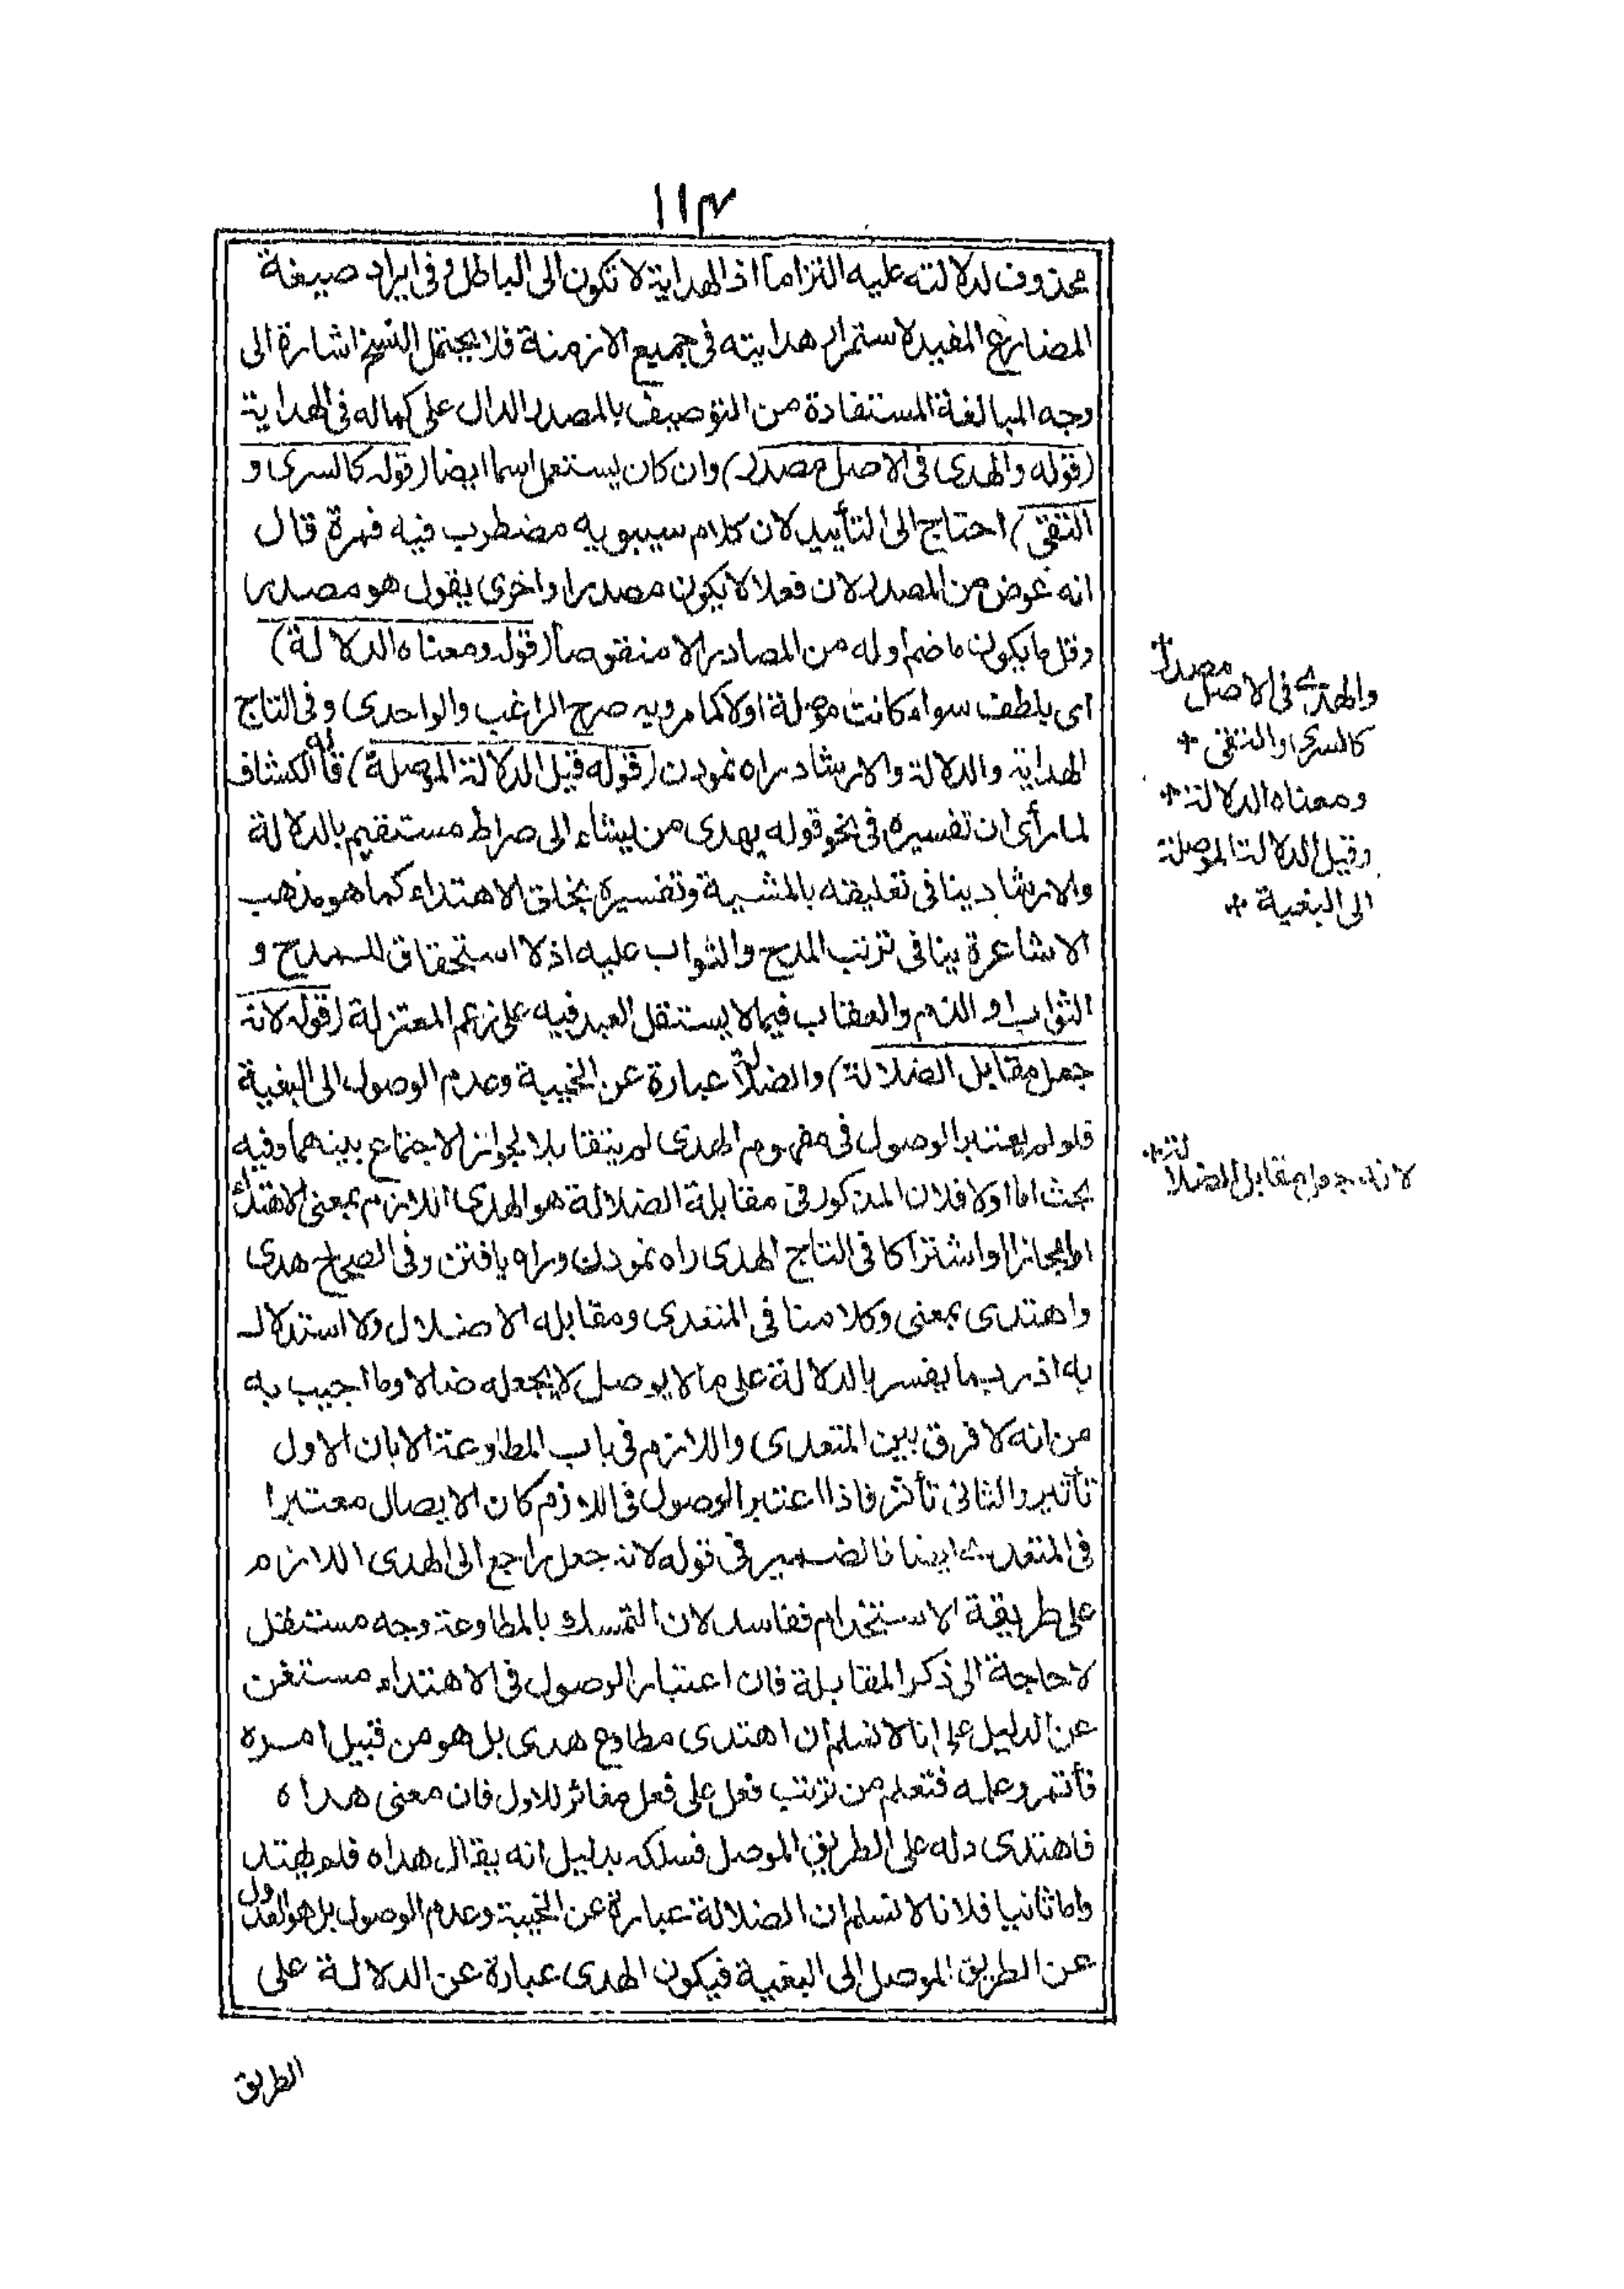 ١١٣
محذوف لدلالته عليه التزاما اذ الهداية لا تكون الى الباطل وفى ايراد صيغة
المضارع المفيد لاستمرار هدايته فى جميع الازمنة فلا يحتمل النسخ اشارة الى
وجه المبالغة المستفادة من التوصيف بالمصدر الدال على كماله فى الهداية
(قوله والهدى فى الاصل مصدر) وان كان يستعمل اسما ايضا (قوله كالسرى و
التقى) احتاج الى التأييد لان كلام سيبويه مضطرب فيه فمرة قال
انه عوض من المصدر لان فعلا لا يكون مصدرا واخرى يقول هو مصدر
وقل ما يكون ما ضم اوله من المصادر الا منقوصا (قوله ومعناه الدلالة)
اى بلطف سواء كانت موصلة اولا كما مر وبه صرح الراغب والواحدى وفى التاج
الهداية والدلالة والارشاد راه نمودن (قوله قيل الدلالة الموصلة) قاله الكشاف
لما رأى ان تفسيره فى نحو قوله يهدى من يشاء الى صراط مستقيم بالدلالة
والارشاد ينافى تعليقه بالمشية وتفسيره بخلق الاهتداء كما هو مذهب
الاشاعرة ينافى ترتب المدح والثواب عليه اذ لا استحقاق للمدح و
الثواب او الذم والعقاب فيما لا يستقل العبد فيه على زعم المعتزلة (قوله لانه
جعل مقابل الضلالة) والضلالة عبارة عن الخيبة وعدم الوصول الى البغية
فلو لم يعتبر الوصول فى مفهوم الهدى لم يتقابلا لجواز الاجتماع بينهما وفيه
بحث اما اولا فلان المذكور فى مقابلة الضلالة هو الهدى اللازم بمعنى الاهتداء
اما مجازا او اشتراكا فى التاج الهدى راه نمودن وراه يافتن وفى الصحاح هدى
واهتدى بمعنى وكلامنا فى المتعدى ومقابله الاضلال ولا استدلال
به اذ ربما يفسر بالدلالة على ما لا يوصل لا بجعله ضالا وما اجيب به
من انه لا فرق بين المتعدى واللازم فى باب المطاوعة الا بان الاول
تأثير والثانى تأثر فاذا اعتبر الوصول فى اللازم كان الايصال معتبرا
فى المتعدى ايضا فالضمير فى قوله لانه جعل راجع الى الهدى اللازم
على طريقة الاستخدام ففاسد لان التمسك بالمطاوعة وجه مستقل
لا حاجة الى ذكر المقابلة فان اعتبار الوصول فى الاهتداء مستغن
عن الدليل على انا لا نسلم ان اهتدى مطاوع هدى بل هو من قبيل امره
فأتمر وعلمه فتعلم من ترتب فعل على فعل مغائر للاول فان معنى هداه
فاهتدى دله على الطريق الموصل فسلكه بدليل انه يقال هداه فلم يهتد
واما ثانيا فلانا لا نسلم ان الضلالة عبارة عن الخيبة وعدم الوصول بل هو العدول
عن الطريق الموصل الى البغية فيكون الهدى عبارة عن الدلالة على
الطريق
والهدى فى الاصل مصدر
كالسرى والتقى
ومعناه الدلالة
وقيل الدلالة الموصلة
الى البغية
لانه جعل مقابل الضلالة